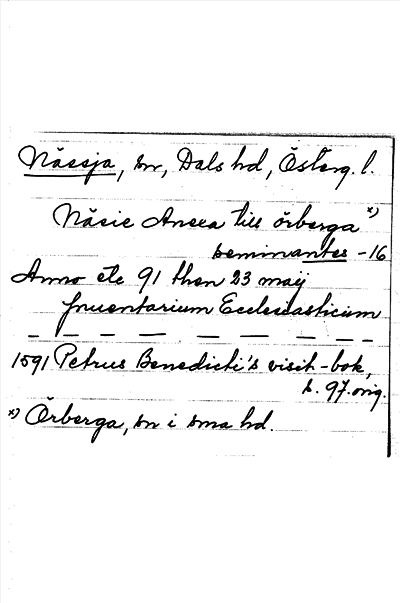 Nässja, sn, Dals hd, Österg. l.
Näsie Anexa till örberga x)
seminantes - 16
Anno etc 91 then 23 maij
Jnuentarium Ecclesiasticum
— — — — — — — —
1591 Petrus Benedicti's visit-bok,
s. 97. orig.
x) Örberga, sn i sma hd.